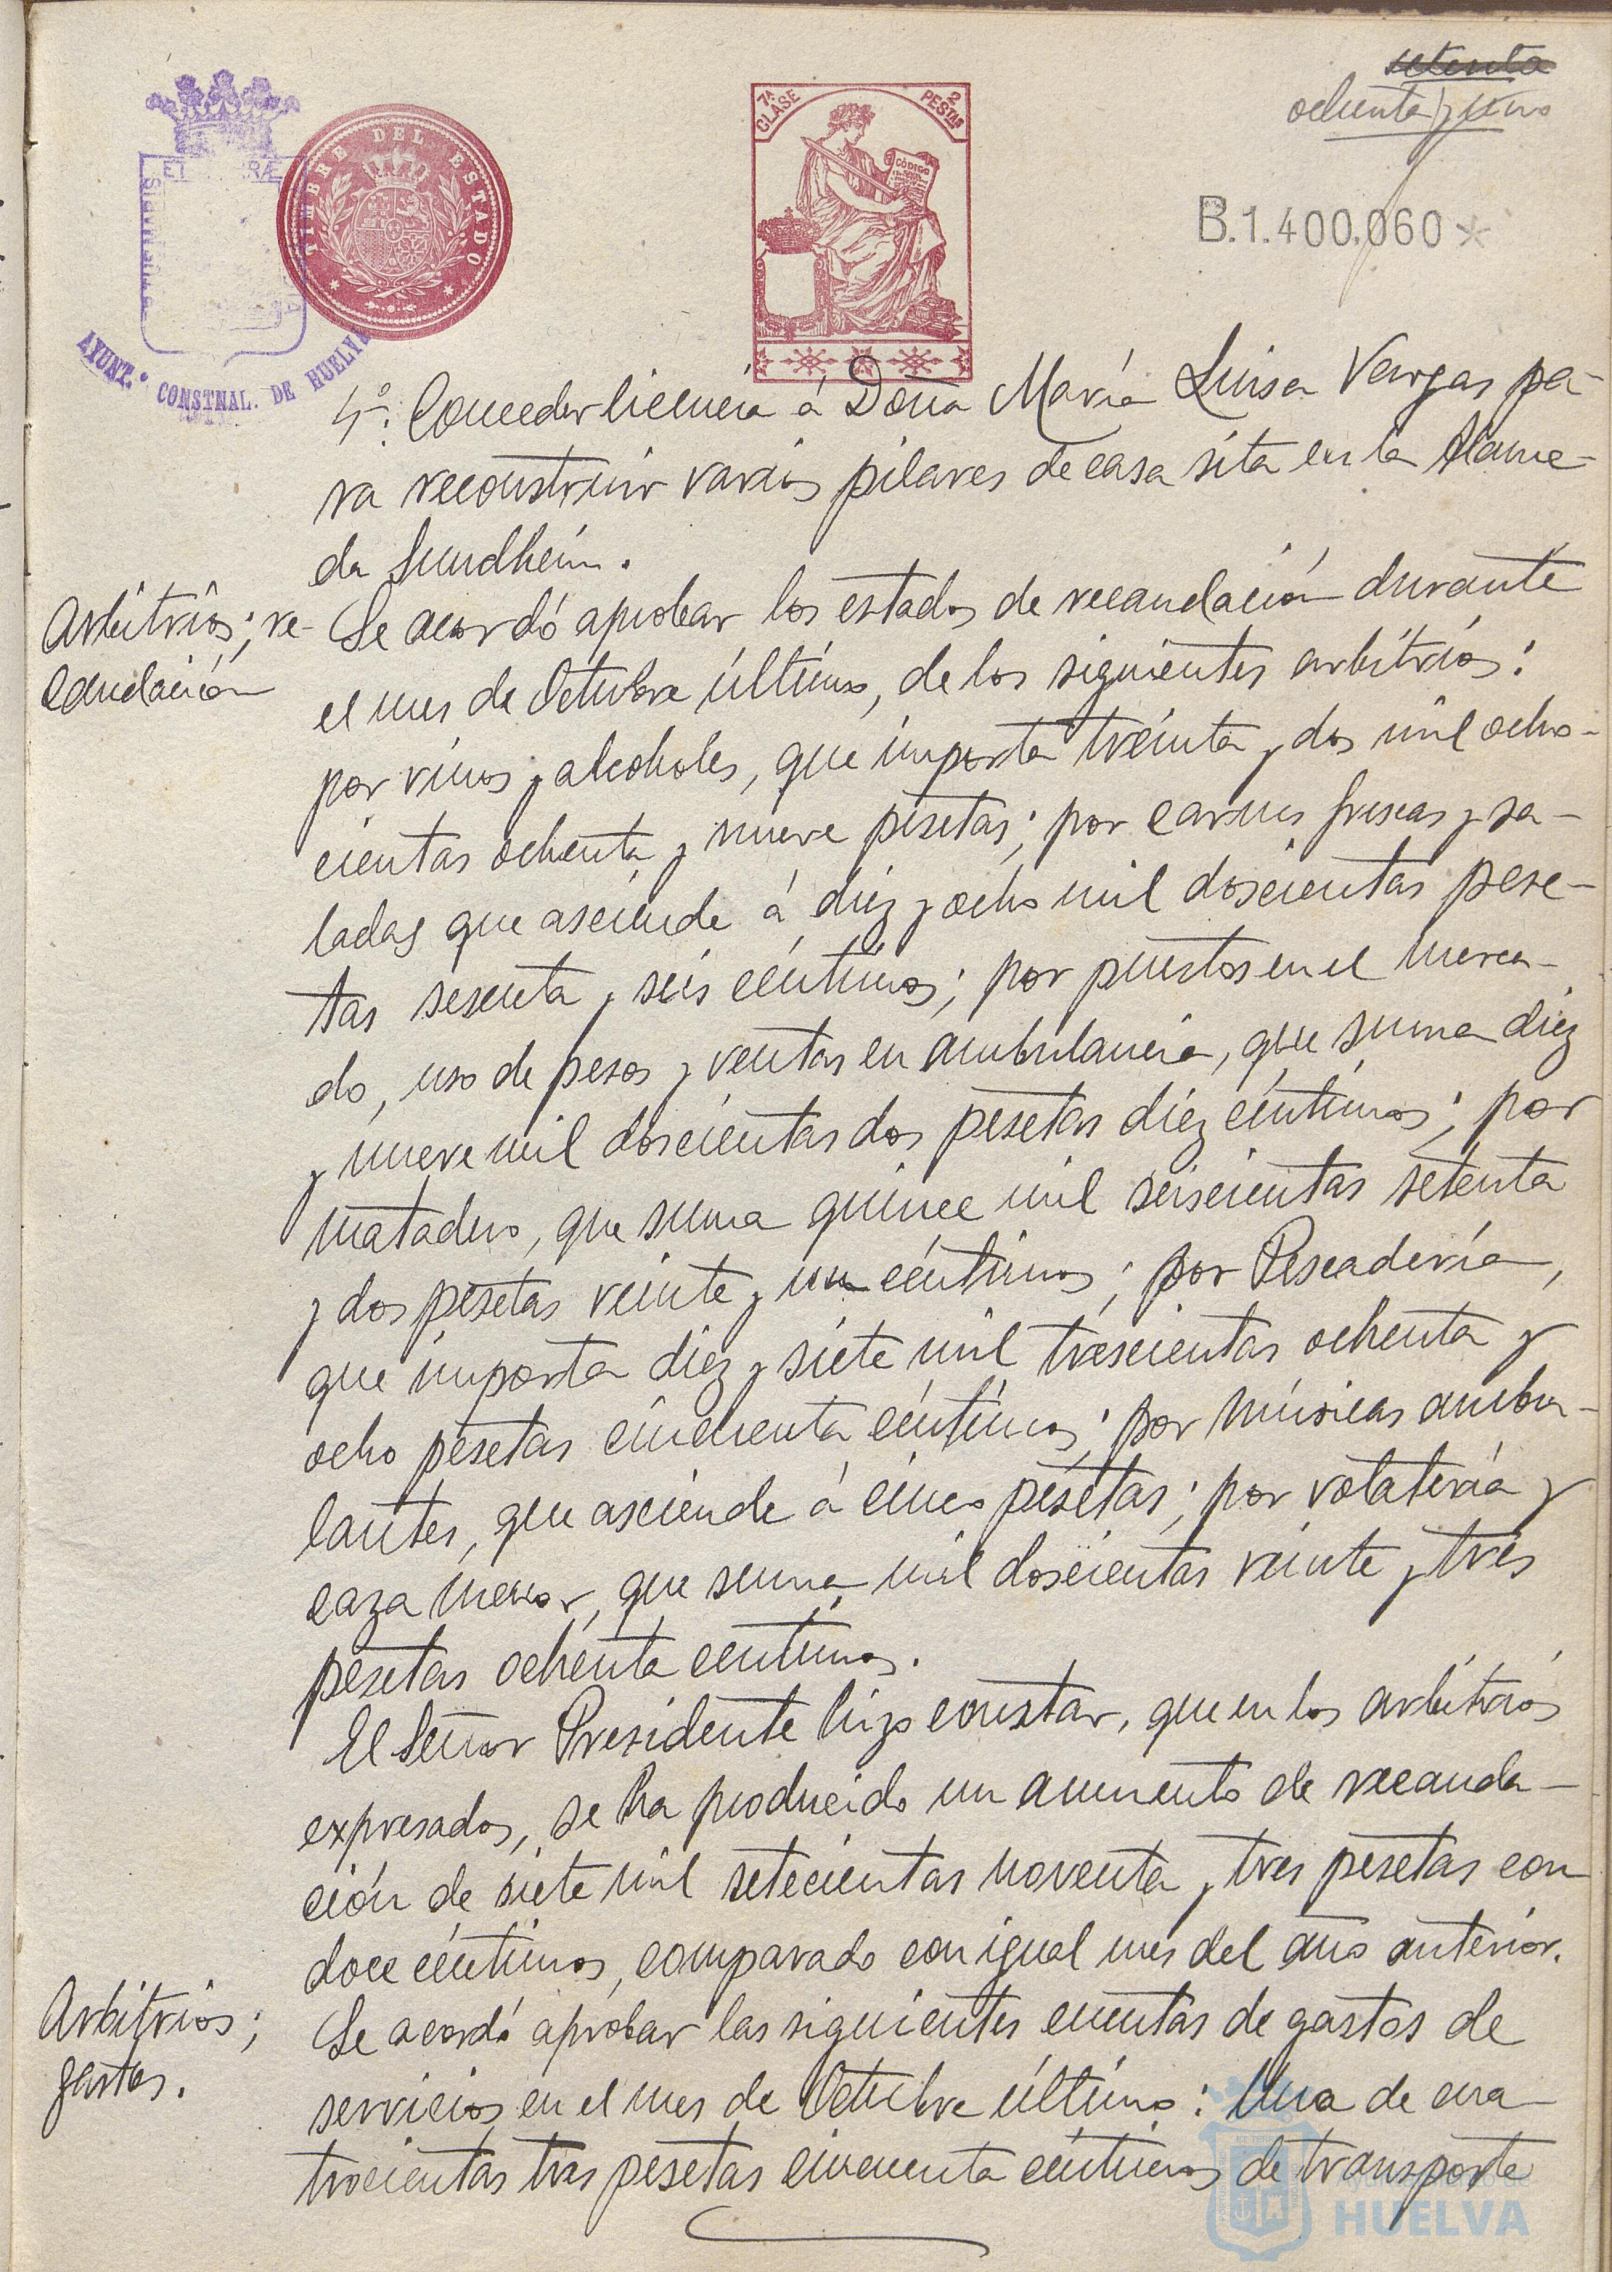 setenta
ochenta y uno
7ª CLASE
2 PESTAS
CÓDIGO
TIMBRE DEL ESTADO
B.1.400,060*
AYUNT.º CONSTNAL. DE HUELVA
4º: Conceder licencia á Doña María Luisa Vargas pa-
ra reconstruir varios pilares de casa sita en la Alame-
da Sundheim.
Arbitrios; re-
caudación
Se acordó aprobar los estados de recaudación durante
el mes de Octubre último, de los siguientes arbitrios:
por vinos y alcoholes, que importa treinta y dos mil ocho-
cientas ochenta y nueve pesetas; por carnes frescas y sa-
ladas que asciende á diez y ocho mil doscientas pese-
tas sesenta y seis céntimos; por puestos en el merca-
do, uso de pesos y ventas en ambulancia, que suma diez
y nueve mil doscientas dos pesetas diez céntimos; por
matadero, que suma quince mil seiscientas setenta
y dos pesetas veinte y un céntimos; por Pescadería,
que importa diez y siete mil trescientas ochenta y
ocho pesetas cincuenta céntimos; por músicas ambu-
lantes, que asciende á cinco pesetas; por volatería y
caza menor, que suma mil doscientas veinte y tres
pesetas ochenta centimos.
El Señor Presidente hizo constar, que en los arbitrios
expresados, se ha producido un aumento de recauda-
ción de siete mil setecientas noventa y tres pesetas con
doce céntimos, comparado con igual mes del año anterior.
Arbitrios;
gastos.
Se acordó aprobar las siguientes cuentas de gastos de
servicios en el mes de Octubre último: Una de cua-
trocientas tres pesetas cincuenta céntimos de transporte
Ayuntamiento de
HUELVA